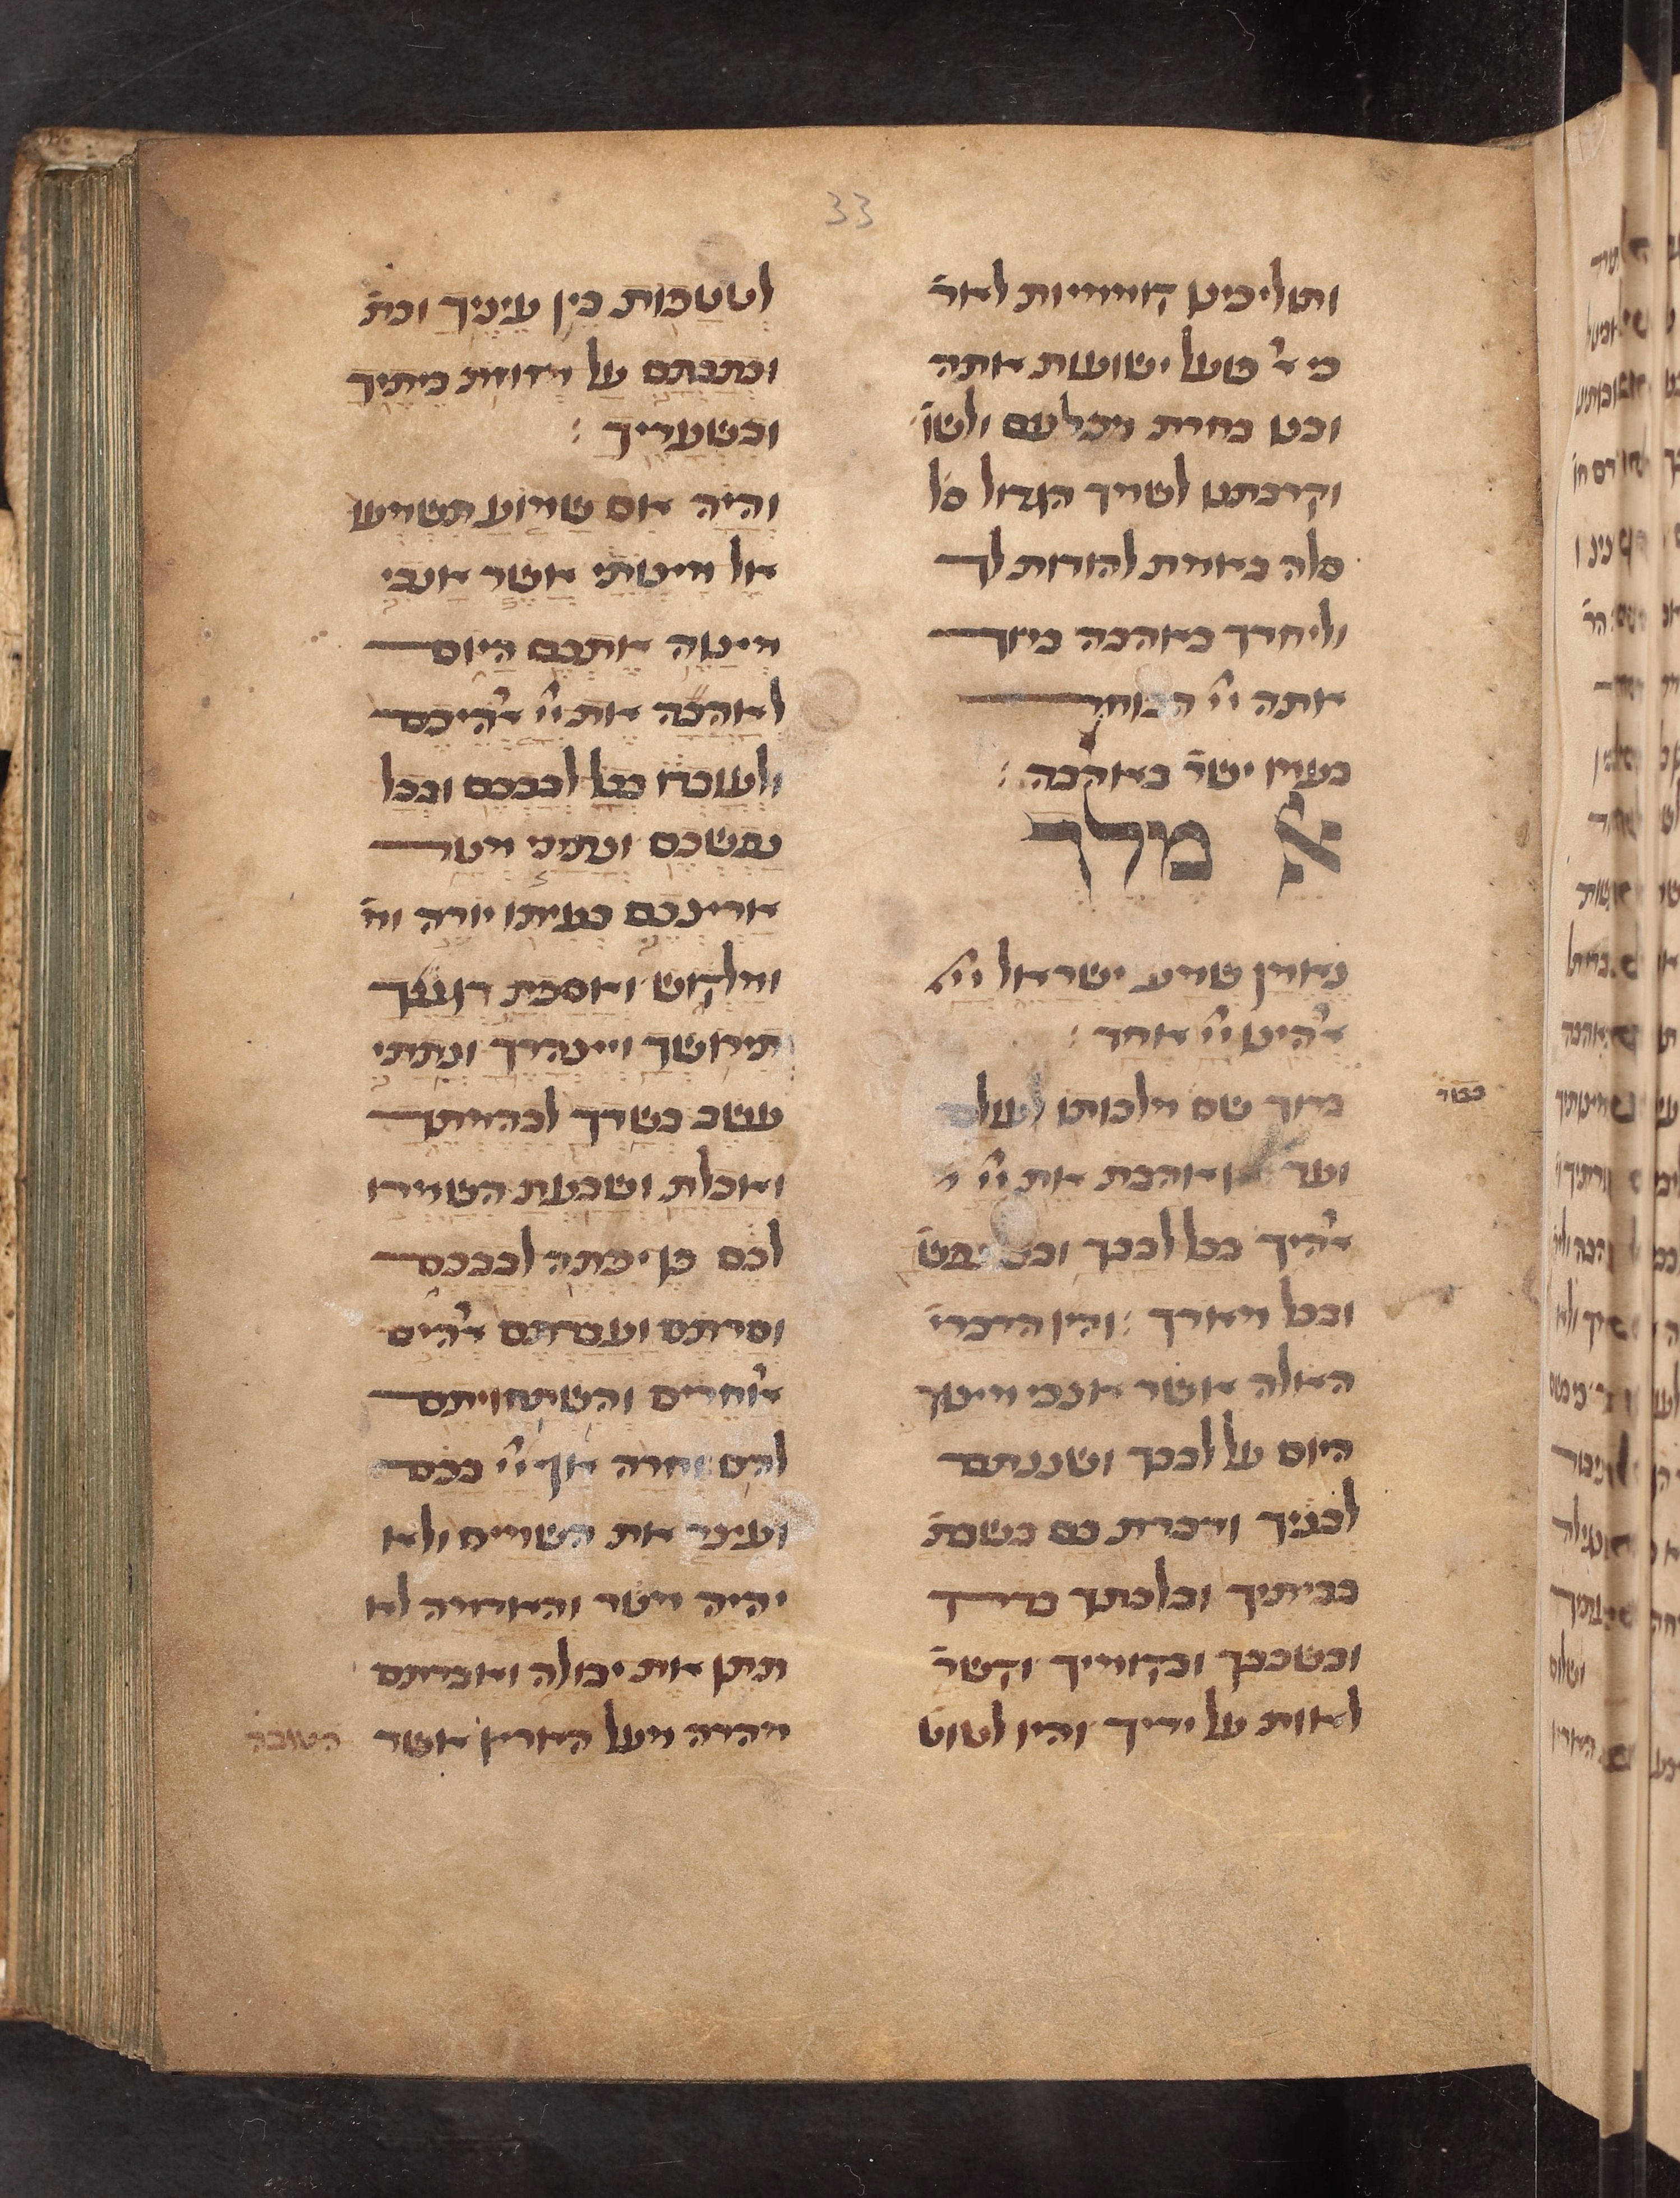 33
ותוליכינו קוממיות לאר׳
כי א׳ל פועל ישועות אתה
ובנו בחרת מכל עם ולשו׳
וקרבתנו לשמך הגדול סל׳
סלה באמת להודות לך
וליחדך באהבה ברוך
אתה יי׳ הבוחר
בעמו ישר׳ באהבה :
אל מלך
נאמן שמע ישראל יי׳
א׳הינו יי׳ אחד :
ברוך שם מלכותו לעולם
ועד ואהבת את יי׳
א׳היך בכל לבבך ובכל נפש׳
ובכל מאדך : והיו הדברי׳
האלה אשר אנכי מצוך
היום על לבבך ושננתם
לבניך ודברת בם בשבת׳
בביתיך ובלכתך בדרך
ובשכבך ובקומיך וקשר׳
לאות על ידיך והיו לטוט׳
לטטפות בין עיניך וכת׳
וכתבתם על מזוזות ביתיך
ובשעריך :
והיה אם שמוע תשמעו
אל מצותי אשר אנכי
מצוה אתכם היום
לאהבה את יי׳ א׳היכם
ולעובדו בכל לבבכם ובכל
נפשכם ונתתי מטר
ארצכם בעיתו יורה ומ׳
ומלקוש ואספת דגנך
תירושך ויצהריך ונתתי
עשב בשדך לבהמתך
ואכלת ושבעת השמרו
לכם פן יפתה לבבכם
וסרתם ועבדתם א׳הים
א׳חרים והשתחויתם
להם וחרה אף יי׳ בכם
ועצר את השמים ולא
יהיה מטר והאדמה לא
תתן את יבולה ואבדתם
מהרה מעל הארץ אשר
הטובה